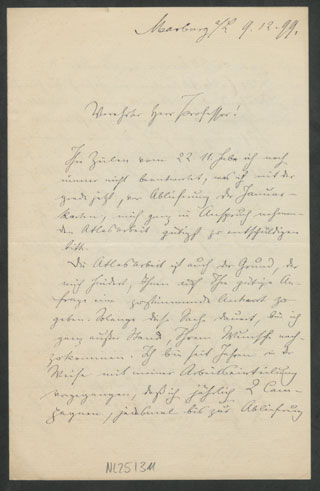 Marburg 9.12.99.
Verehrter Herr Professor!
Ihr Zeilen vom 22. 11. habe ich noch
immer nicht beantwortet, was ich mit der
grade jetzt, vor Ablieferung der Januar-
Karten, mich ganz in Anspruch nehmen-
den Atlasarbeit gütigst zu entschuldigen
bitte.
Die Atlasarbeit ist auch der Grund, der
mich hindert, Ihnen auf Ihre gütige An-
frage eine zustimmende Antwort zu
geben. Solange diese Sache dauert, bin ich
ganz außer Stand, Ihrem Wunsche nach-
zukommen. Ich bin seit Jahren in der
Weise mit meiner Arbeitseinteilung
vorgegangen, daß ich jährlich 2 Cam-
pagnen, jedesmal bis zur Ablieferung
NL251311